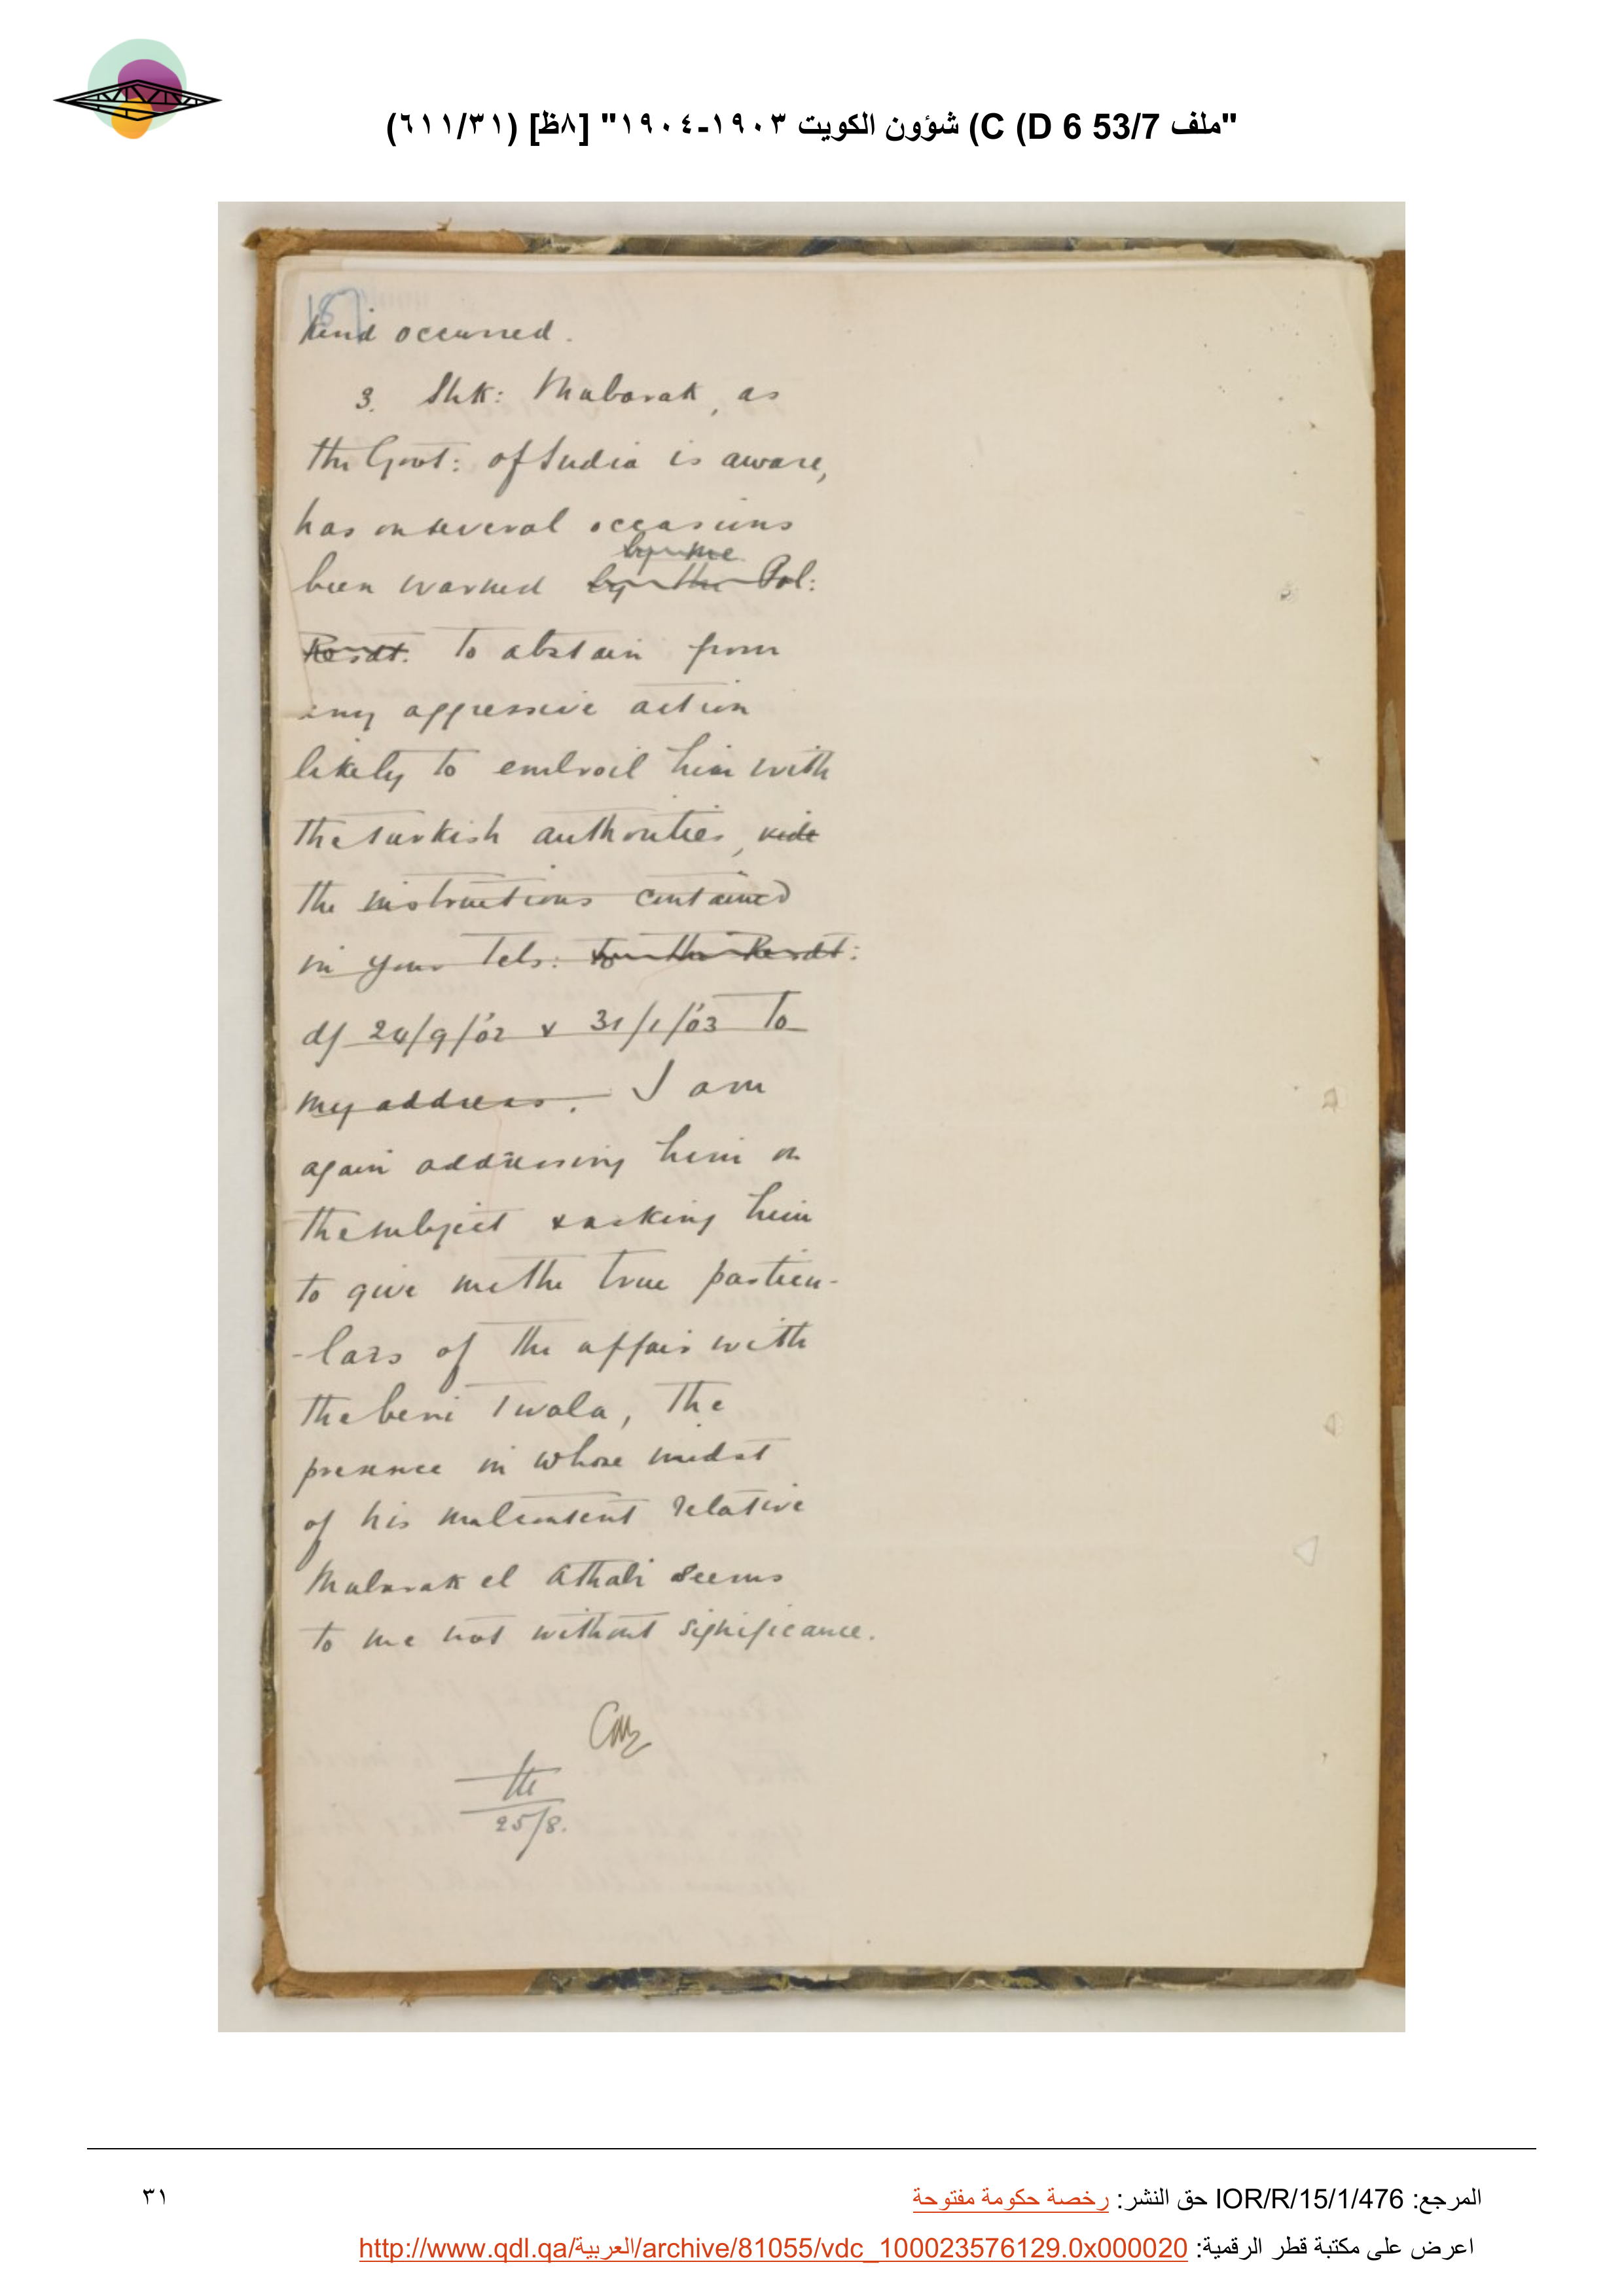 "ملف 53/7 D 6) C) شؤون الكويت ١٩٠٣-١٩٠٤" [٨ظ] (٦١١/٣١)
187
kind occurred.
3. Shk: Mubarak, as
the Govt: of India is aware,
has on several occasions
by me
been warned by the Pol:
Resdt. to abstain from
any aggressive action
likely to embroil him with
the Turkish authorities, vide
the instructions contained
in your Tels: to the Resdt:
d/ 24/9/'02 & 31/1/'03 to
my address. I am
again addressing him on
the subject & asking him
to give me the true particu-
-lars of the affair with
the beni Twala, the
presence in whose midst
of his malcontent relative
Mubarak el Athabi seems
to me not without significance.
25/8.
المرجع: IOR/R/15/1/476 حق النشر: رخصة حكومة مفتوحة
٣١
اعرض على مكتبة قطر الرقمية: http://www.qdl.qa/العربية/archive/81055/vdc_100023576129.0x000020